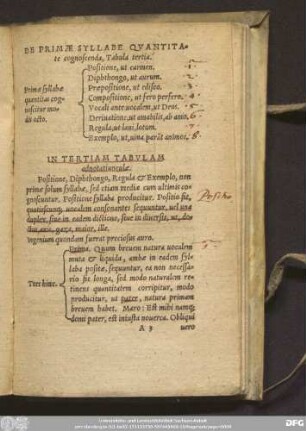 DE PRIMÆ SYLLABE QVANTITA-
te cognoscenda, Tabula tertia.
Positione, ut carmen. 1
Diphthongo, ut aurum. 2
Præpositione, ut elisco. 3
Primæ syllabæ
quantitas cog-
noscitur mo-
dis octo.
Compositione, ut fero perfero. 4
Vocali ante uocalem, ut Deus. 5
Deriuatione, ut amabilis, ab amo. 6
Regula, ut laus, lotum. 7
Exemplo, ut, uina parât animos. 8
IN TERTIAM TABVLAM
adnotatiunculæ.
Positione, Diphthongo, Regula & Exemplo, non
primæ solum syllabæ, sed etiam mediæ cum ultimis co-
gnoscuntur. Positione syllaba producitur. Positio fit,
Positio
quotiescunq; uocalem consonantes sequuntur, uel una
duplex, siue in eadem dictione, siue in diuersis, ut,
gaza, maior, ille.
Ingenium quondam fuerat preciosius auro.
Prima. Quum breuem natura uocalem
muta & liquida, ambæ in eadem sylla-
ba positæ, sequuntur, ea non necessa-
Tres hinc.
rio fit longa, sed modo naturalem re-
tinens quantitatem corripitur, modo
producitur, ut pater, natura primam
breuem habet. Maro: Est mihi namq;
domi pater, est iniusta nouerca. Obliqui
A 5 uero